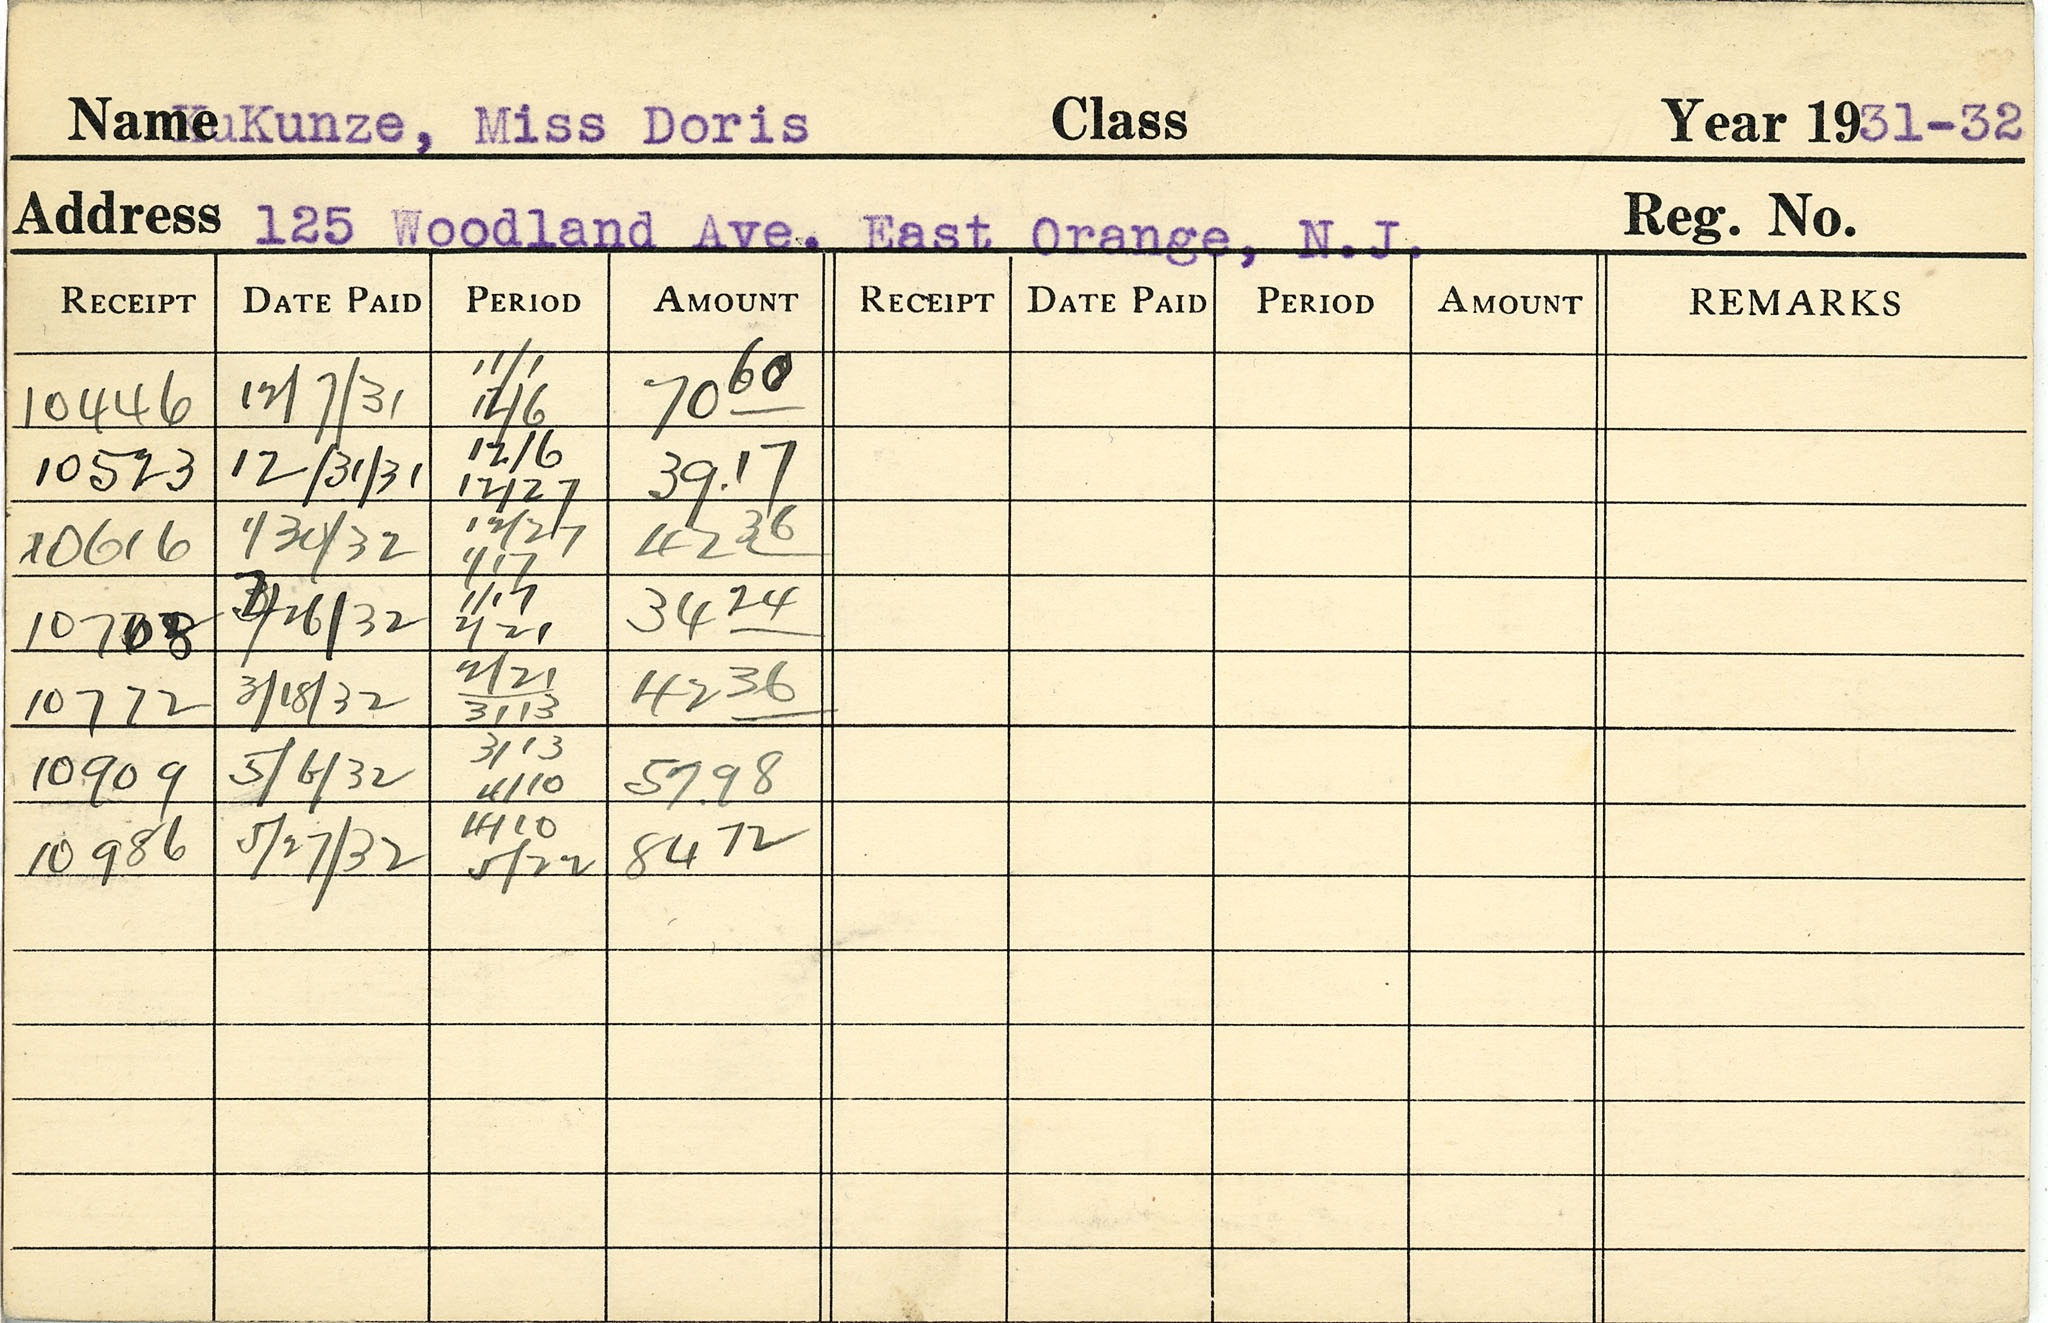 Name KuKunze, Miss Doris Class Year 1931-32
Address 125 Woodland Ave. East Orange, N.J. Reg. No.
RECEIPT DATE PAID PERIOD AMOUNT RECEIPT DATE PAID PERIOD AMOUNT REMARKS
11/1
10446 12/7/31 12/6 70 60
12/6
10523 12/31/31 12/27 39.17
12/27
10616 1/30/32 1/17 42 36
1/17
10708 /26/32 2/21 34 24
2/21
10772 3/18/32 3/13 42 36
3/13
10909 5/6/32 4/10 57.98
4/10
10986 5/27/32 5/22 84 72